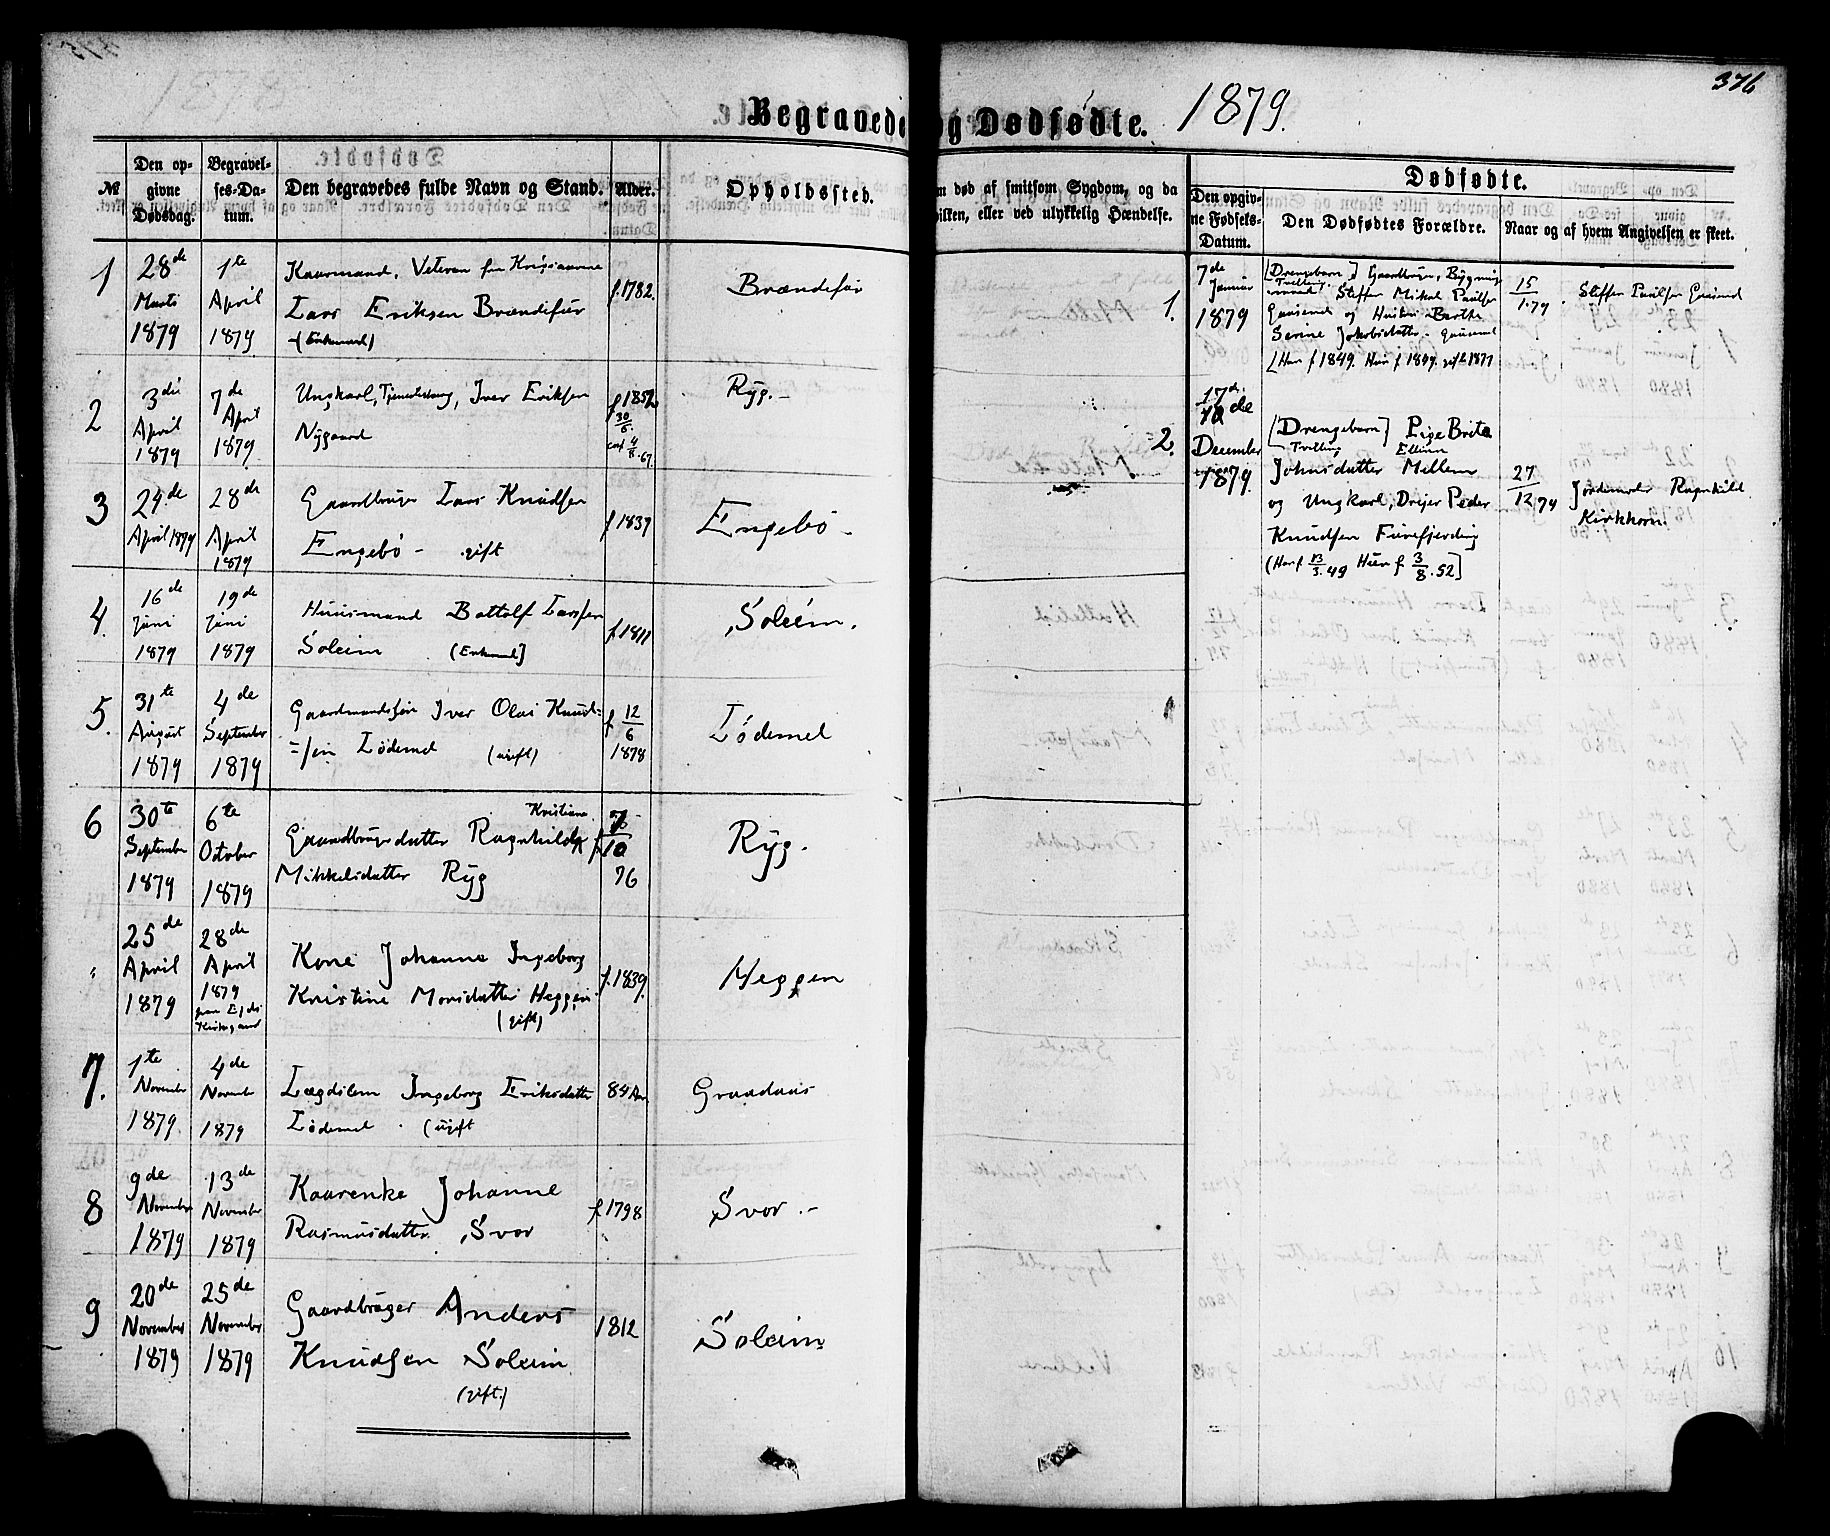 376
Begravede og Dødfødte. 1879.
№
Den op-
givne
Dødsdag.
Begravel-
ses-Da-
tum.
Den begravedes fulde Navn og Stand.
Alder.
Opholdssted.
død af smitsom Sygdom, og da
hvilken, eller ved ulykkelig Hændelse.
Dødfødte.
Den opgiv-
ne Fødsels-
Datum.
Den Dødfødtes Forældre.
Naar og af hvem Angivelsen er skeet.
1
28de
Marts
1879
1te
April
1879
Kaarmand, Veteran fra
Lars Eriksen Brændefur
(Enkemand)
f. 1782.
Brændefur
2
3die
April
1879
7de
April
1879
Ungkarl, Iver Eriksen
Nygaard
f 1852
30/6
4/8.67.
Ryg.
3
24de
April 1879
28de
April
1879
Gaardbruger Lars Knudsen
Engebø - gift
f 1837
Engebø -
4.
16de
Juni
1879
19de
Juni
1879
Huusmand Bottolf Larssen
Soleim (Enkemand)
f. 1811
Soleim.
5.
31te
August
1879
4de
September
1879
Gaardmandssøn Iver Olai Knud=
=sen Lødemel (ugift)
f 12/6
1878
Lødemel
6
30te
September
1879
6te
October
1879
Kristiane
Gaardbrugerdatter Ragnhild
Mikkelsdatter Ryg
10
76
Ryg.
"
25de
April
1879
28de
April
1879
paa Ejds
Kirkegaard
Kone Johanne Ingeborg
Kristine Monsdatter Heggen
(gift)
f. 1839.
Heggen
7.
1te
November
1879.
4de
November
1879
Lægdslem Ingeborg Eriksdatter
Lødemel. (ugift
84 Aar
Graadaus
8
9de
November
1879
13de
November
1879
Kaarenke Johanne
Rasmusdatter Svor
f 1798
Svor.-
9
20de
November
1879
25de
November
1879
Gaardbruger Anders
Knudsen Soleim
(gift.)
1812
Soleim
1.
7de
Januar
1879
[Drengebarn] Gaardbruger, Bygnings
Tvilling
mand Steffen Mikal Paulsen
Gausend og Hustru Berthe
Serine Jakobsdatter Gausend
[Han f 1849. Hun f 1849. gift 1877
15/1.79
Steffen Paulsen Gausend
2.
17de
December
1879.
[Drengebarn] Pige Brite
Tvilling Elline
Johnsdatter Mellem
og Ungkarl, Drejer Peder
Knudsen Furefjerding
(Han f 13/3.49 Hun f 3/8.52]
27/12.79
Jordemoder Ragnhild
Kirkhorn.